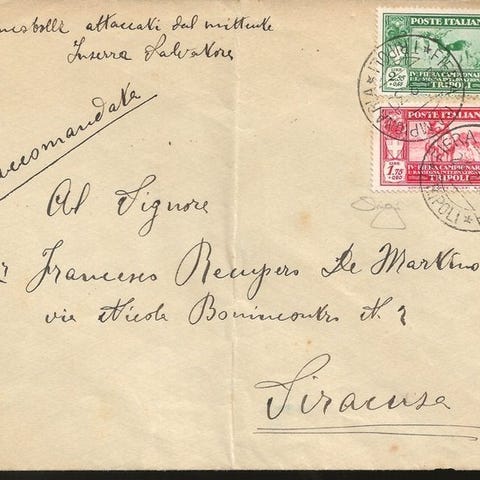 attaccati dal mittente
Inserra Salvatore
Raccomandata
POSTE ITALIANE
IVª FIERA CAMPIONARIA
TRIPOLI
POSTE ITALIANE
1.75
IVª FIERA CAMPIONARIA
TRIPOLI
FIERA
TRIPOLI
Al Signore
Francesco Recupero De Martino
via Nicola Bonincontro N. 2
Siracusa